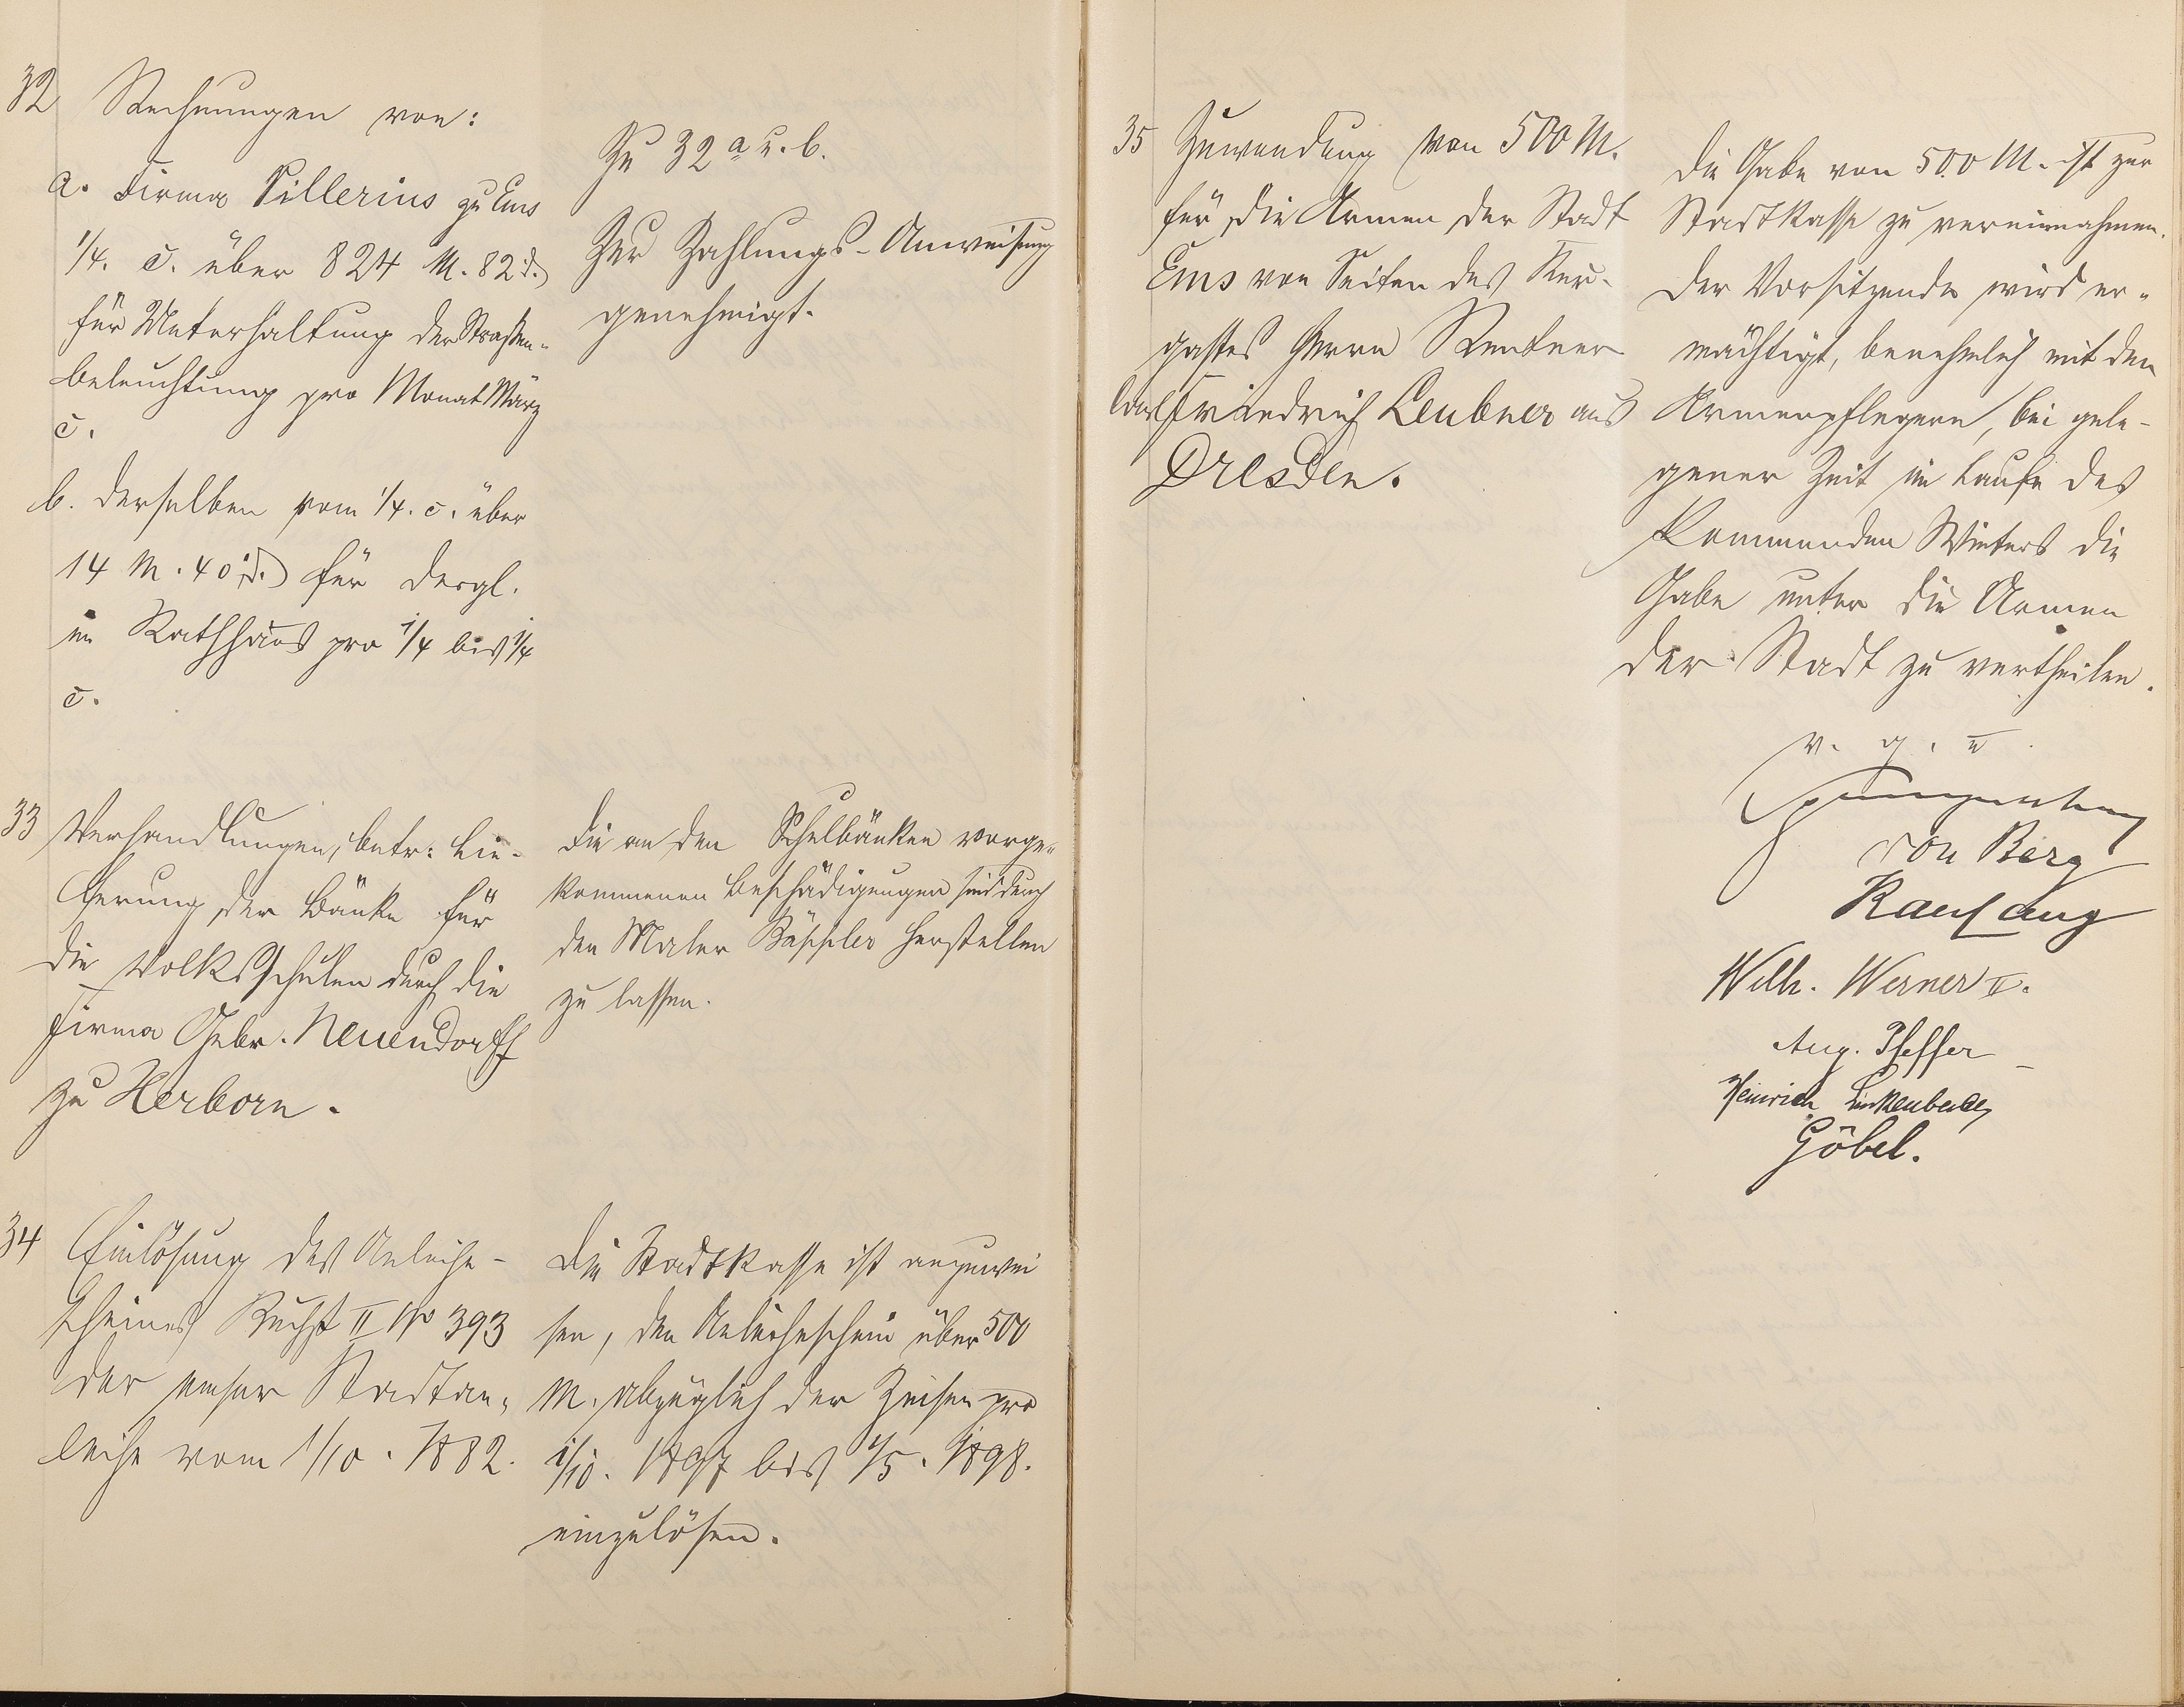 32 Rechnungen von:
a. Firma Sillerius zu Ems
1/4. c. über 824 M. 82 d.
für Unterhaltung der Straßen-
beleuchtung pro Monat März
c.
b. derselben vom 1/4. c. über
14 M. 40 d. für dergl.
im Rathhaus pro 1/4 bis 1/4
c.
Zu 32 a u. b.
Zur Zahlungs-Anweisung
genehmigt.
33 Verhandlungen, betr: Lie-
ferung der Bänke für
die Volksschulen durch die
Firma Gebr. Neuendorff
zu Herborn.
Die an den Schulbänken vorge-
kommenen Beschädigungen sind durch
den Maler Bäppler herstellen
zu lassen.
34 Einlösung des Anleihe-
scheines Buchst II No 393
der emser Stadtan-
leihe vom 1/10. 1882.
Die Stadtkasse ist anzuwei
sen, den Anleiheschein über 500
M. abzüglich der Zinsen pro
1/10. 1897 bis 1/5. 1898.
einzulösen.
35 Zuwendung von 500 M.
für die Armen der Stadt
Ems von Seiten des Kur-
gastes Herrn Rentner
Carl Friedrich Leubner aus
Dresden.
Die Gabe von 500 M. ist zur
Stadtkasse zu vereinnahmen.
Der Vorsitzende wird er-
mächtigt, benehmlich mit den
Armenpflegern, bei gele-
gener Zeit im Laufe des
kommenden Winters die
Gabe unter die Armen
der Stadt zu vertheilen.
v. g. u.
von Berg
Kauf aug
Wilh. Werner II.
Aug. Pfeffer
Heinrich Linkenbach
Göbel.